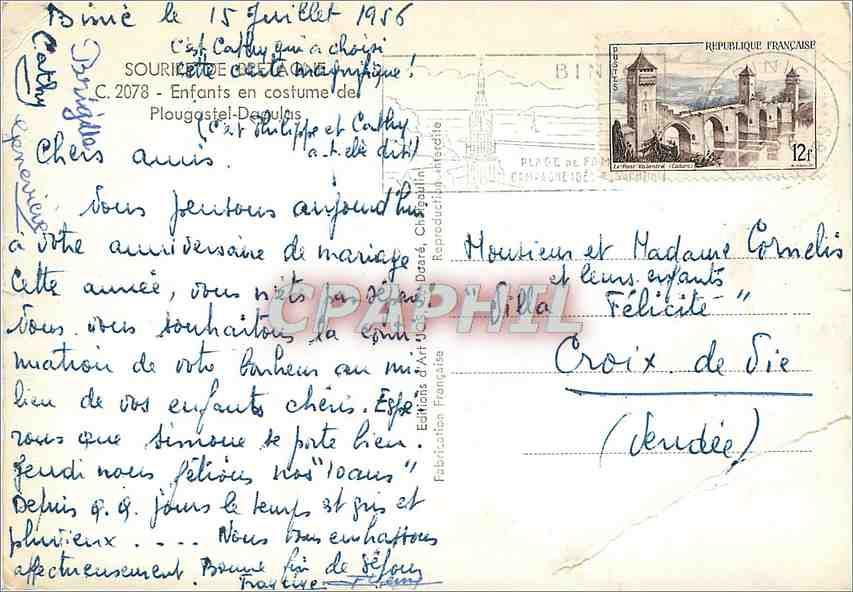 Binic le 15 Juillet 1956
C'est Cathy qui a choisi
cette carte magnifique !
SOURIRE DE BRETAGNE
C. 2078 - Enfants en costume de
Plougastel-Daoulas
(C'est Philippe et Cathy
a-t-elle dit)
Brigitte
Cathy
Geneviève
Chers amis.
Nous pensons aujourd'hui
à votre anniversaire de mariage
Cette année, vous n'êts pas séparés!
Nous vous souhaitons la conti
nuation de votre bonheur au mi
lieu de vos enfants chéris. Espé
rons que Simone se porte bien.
Jeudi nous fêtions nos "10 ans"
Depuis q.q. jours le temps est gris et
pluvieux .... Nous vous embrassons
affectueusement. Bonne fin de séjour
Francine
Editions d'Art JOS
Daaré, Châteaulin
Reproduction interdite
Fabrication Française
BIN
PLAGE DE FAM
CAMPAGNE IDÉ
POSTES
REPUBLIQUE FRANÇAISE
Le Pont Valentré (Cahors)
12f
Monsieur et Madame Cornelis
et leurs enfants
"Villa Félicité"
Croix. de Vie
(Vendée)
CPAPHIL